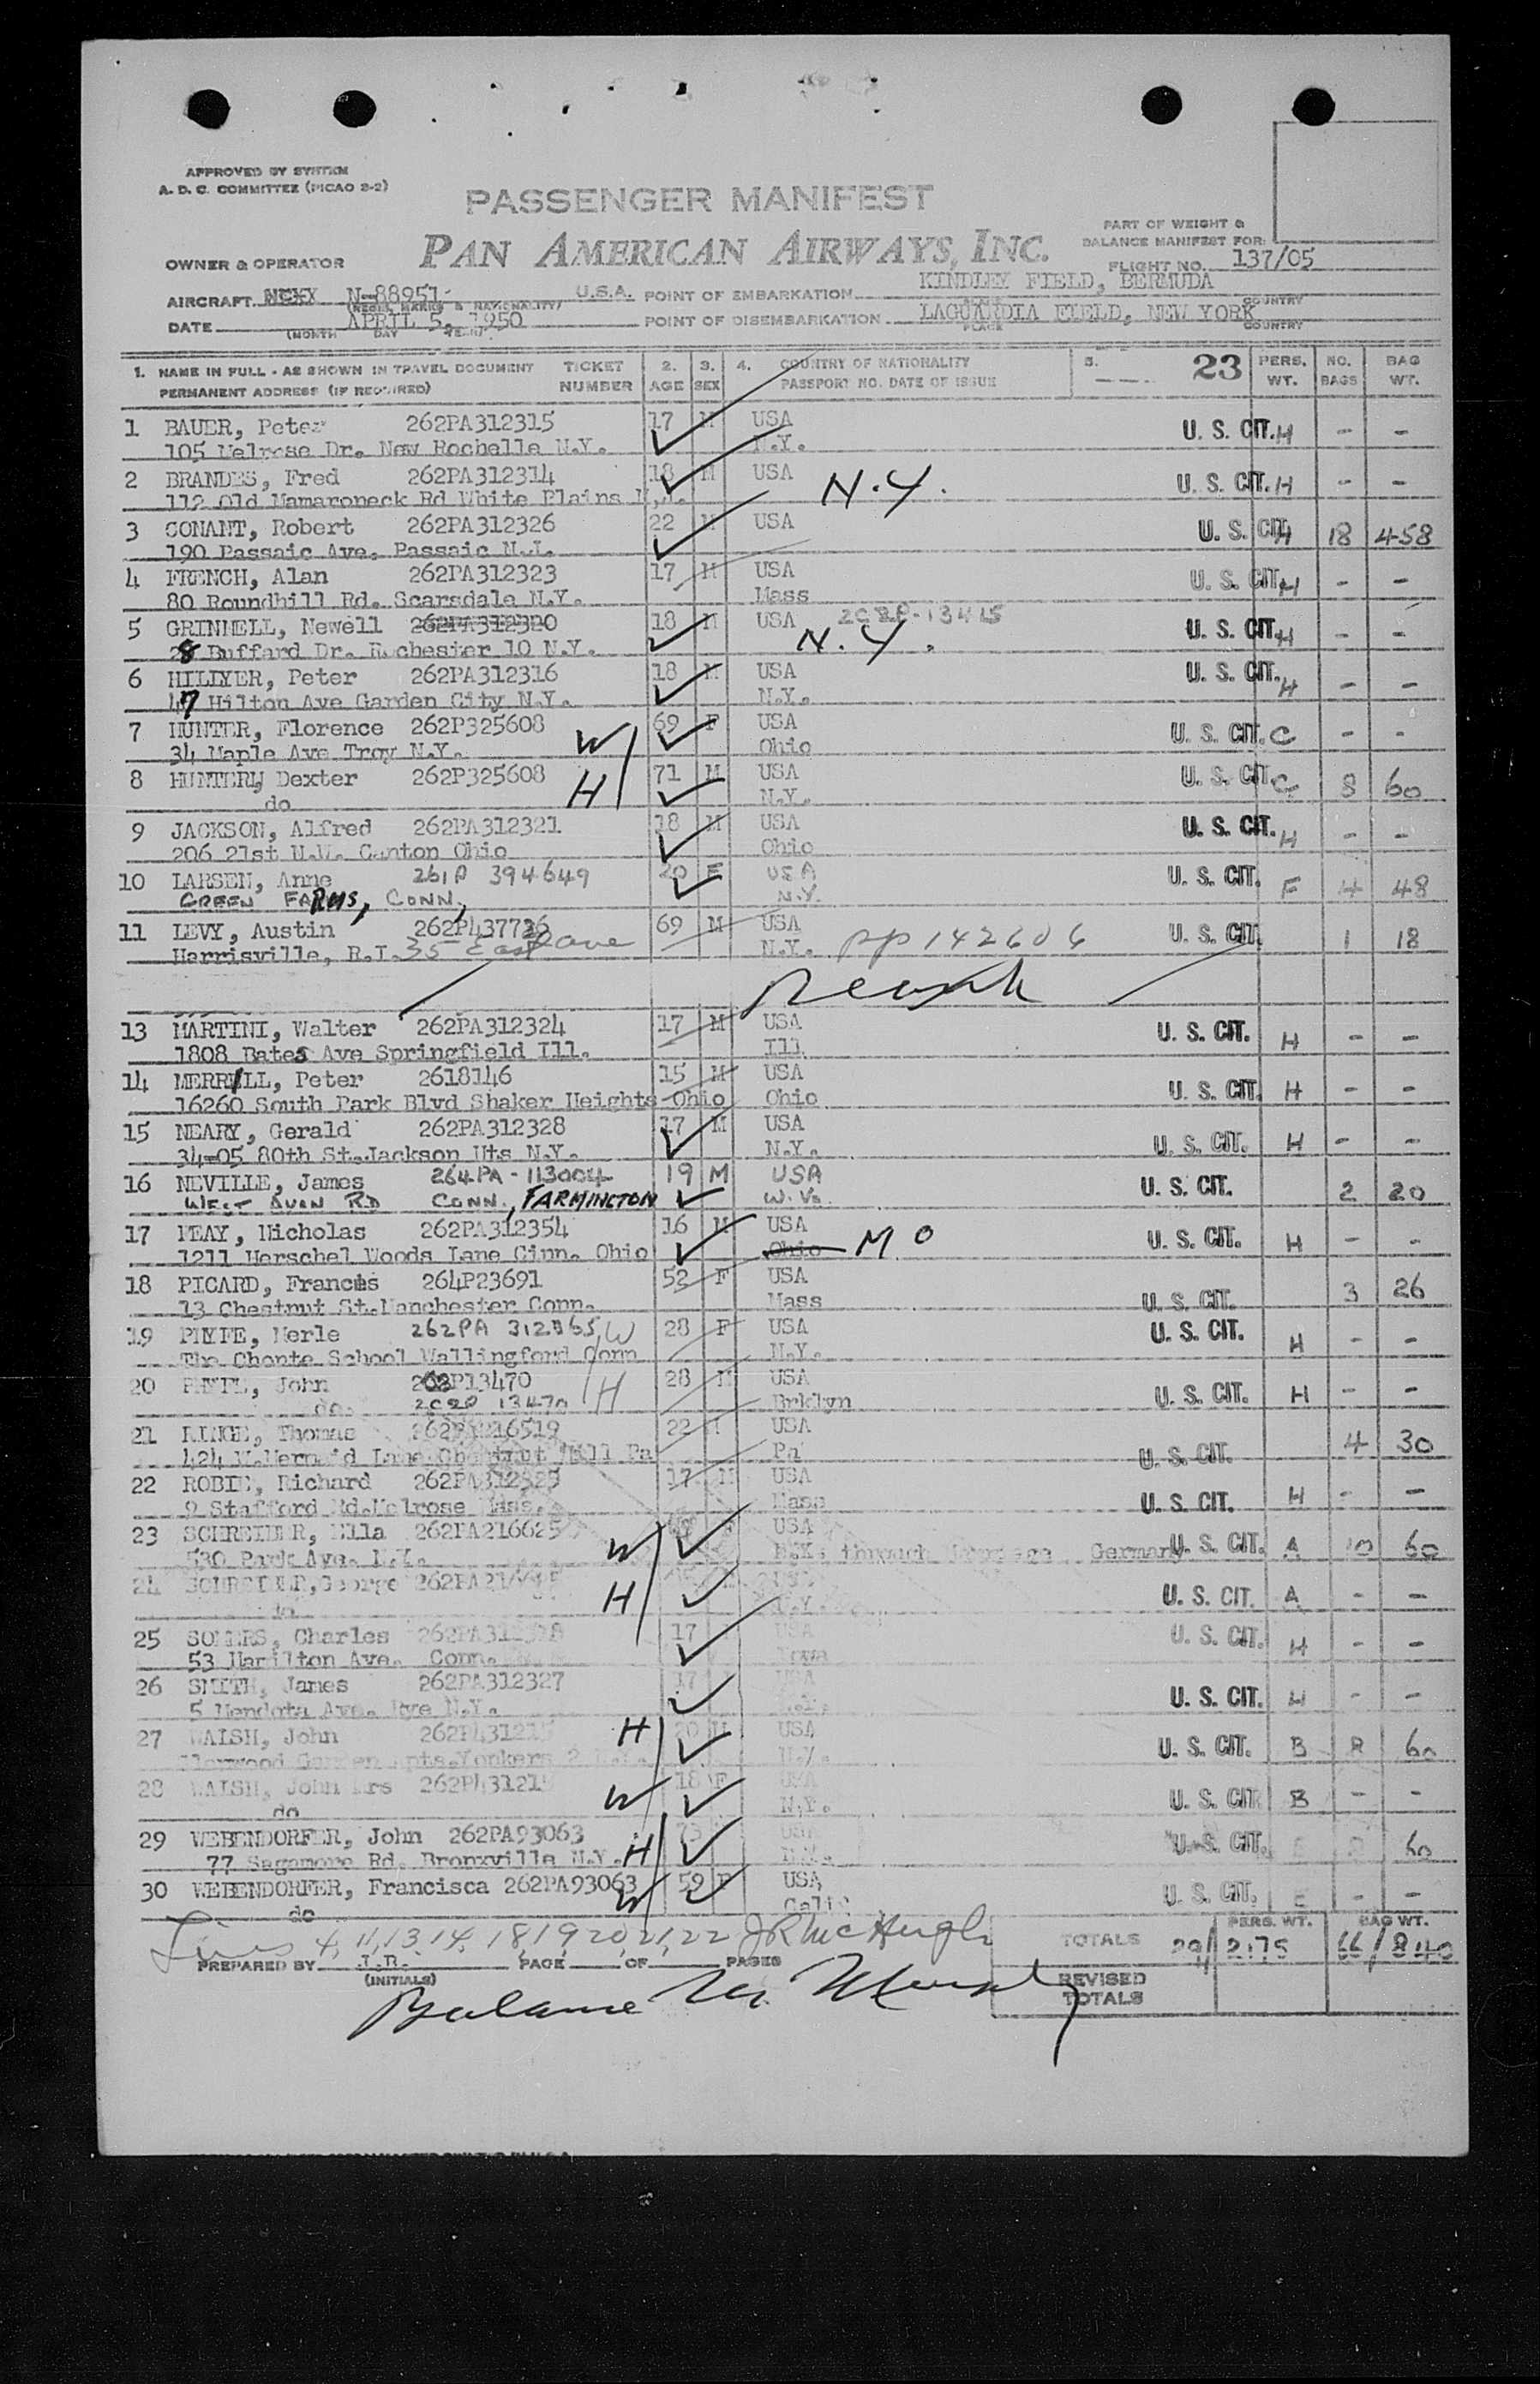 APPROVED BY SYSTEM
A. D. C. COMMITTEE (PICAO 2-2)
PASSENGER MANIFEST
PAN AMERICAN AIRWAYS, INC.
PART OF WEIGHT &
BALANCE MANIFEST FOR:
FLIGHT NO. 137/05
OWNER & OPERATOR
AIRCRAFT N-88951 U.S.A. POINT OF EMBARKATION KINDLEY FIELD, BERMUDA
(REGIS. MARKS & NATIONALITY) COUNTRY
DATE APRIL 5, 1950 POINT OF DISEMBARKATION LAGUARDIA FIELD, NEW YORK
(MONTH DAY YEAR) PLACE COUNTRY
1. NAME IN FULL - AS SHOWN IN TRAVEL DOCUMENT TICKET 2. 3. 4. COUNTRY OF NATIONALITY 5. 23 PERS. NO. BAG
PERMANENT ADDRESS (IF REQUIRED) NUMBER AGE SEX PASSPORT NO. DATE OF ISSUE WT. BAGS WT.
1 BAUER, Peter 262PA312315 17 M USA U. S. CIT. H - -
105 Melrose Dr. New Rochelle N.Y. N.Y.
2 BRANDES, Fred 262PA312314 18 M USA N.Y. U. S. CIT. H - -
112 Old Mamaroneck Rd White Plains N.Y.
3 CONANT, Robert 262PA312326 22 M USA U. S. CIT. H 18 458
190 Passaic Ave. Passaic N.J.
4 FRENCH, Alan 262PA312323 17 M USA U. S. CIT. H - -
80 Roundhill Rd. Scarsdale N.Y. Mass
5 GRINNELL, Newell 262PA312320 18 M USA 202P-13415 U. S. CIT. H - -
28 Buffard Dr. Rochester 10 N.Y. N.Y.
6 HILLYER, Peter 262PA312316 18 M USA U. S. CIT. H - -
47 Hilton Ave Garden City N.Y. N.Y.
7 HUNTER, Florence 262P325608 W 69 F USA U. S. CIT. C - -
34 Maple Ave Troy N.Y. Ohio
8 HUNTER, Dexter 262P325608 H 71 M USA U. S. CIT. C 8 60
do N.Y.
9 JACKSON, Alfred 262PA312321 18 M USA U. S. CIT. H - -
206 21st N.W. Canton Ohio Ohio
10 LARSEN, Anne 261P 394649 20 F USA U. S. CIT. F 4 48
GREEN FARMS, CONN, N.Y.
11 LEVY, Austin 262P437726 69 M USA U. S. CIT. 1 18
Harrisville, R.I. 35 East ave N.Y. pp 142606
13 MARTINI, Walter 262PA312324 17 M USA U. S. CIT. H - -
1808 Bates Ave Springfield Ill. Ill
14 MERRILL, Peter 2618146 15 M USA U. S. CIT. H - -
16260 South Park Blvd Shaker Heights Ohio Ohio
15 NEARY, Gerald 262PA312328 17 M USA U. S. CIT. H - -
34-05 80th St. Jackson Hts N.Y. N.Y.
16 NEVILLE, James 264PA-113004 19 M USA U. S. CIT. 2 20
WEST AVON RD CONN, FARMINGTON W. Va.
17 PEAY, Nicholas 262PA312354 16 M USA U. S. CIT. H - -
1211 Herschel Woods Lane Cinn. Ohio Ohio MO
18 PICARD, Frances 264P23691 52 F USA U. S. CIT. 3 26
13 Chestnut St. Manchester Conn. Mass
19 PHYFE, Merle 262PA 312365 W 28 F USA U. S. CIT. H - -
The Choate School Wallingford Conn N.Y.
20 PHYFE, John 13470 H 28 M USA U. S. CIT. H - -
do. 202P 13470 Brklyn
21 Thomas 216519 22 M USA U. S. CIT. 4 30
424 W. Mermaid Lane Chestnut Hill Pa Pa
22 ROBIE, Richard 262PA312325 17 M USA U. S. CIT. H - -
9 Stafford Rd. Melrose Mass. Mass
23 SCHREIBER, Ella 262PA216625 W F USA U. S. CIT. A 10 60
530 Park Ave. N.Y. N.Y. through Germany
24 SCHREIBER, George H U. S. CIT. A - -
do N.Y.
25 SOMERS, Charles 17 USA U. S. CIT. H - -
53 Hamilton Ave. Conn.
26 SMITH, James 262PA312327 17 USA U. S. CIT. H - -
5 Mendota Ave. Rye N.Y. N.Y.
27 WALSH, John H 20 M USA U. S. CIT. B 60
Garden Apts. Yonkers 2 N.Y. N.Y.
28 WALSH, John Mrs W 18 F USA U. S. CIT B - -
do N.Y.
29 WEBENDORFER, John 262PA93063 H USA U. S. CIT. 60
77 Sagamore Rd. Bronxville N.Y. N.Y.
30 WEBENDORFER, Francisca 262PA93063 W 59 F USA U. S. CIT. E - -
do Calif
Lines 4, 11, 13, 14, 18, 19, 20, 21, 22 J R McHugh
PREPARED BY J.B. PAGE OF PAGES
(INITIALS)
PERS. WT. BAG WT.
TOTALS 29/ 2175 66/ 840
REVISED
TOTALS
Balance